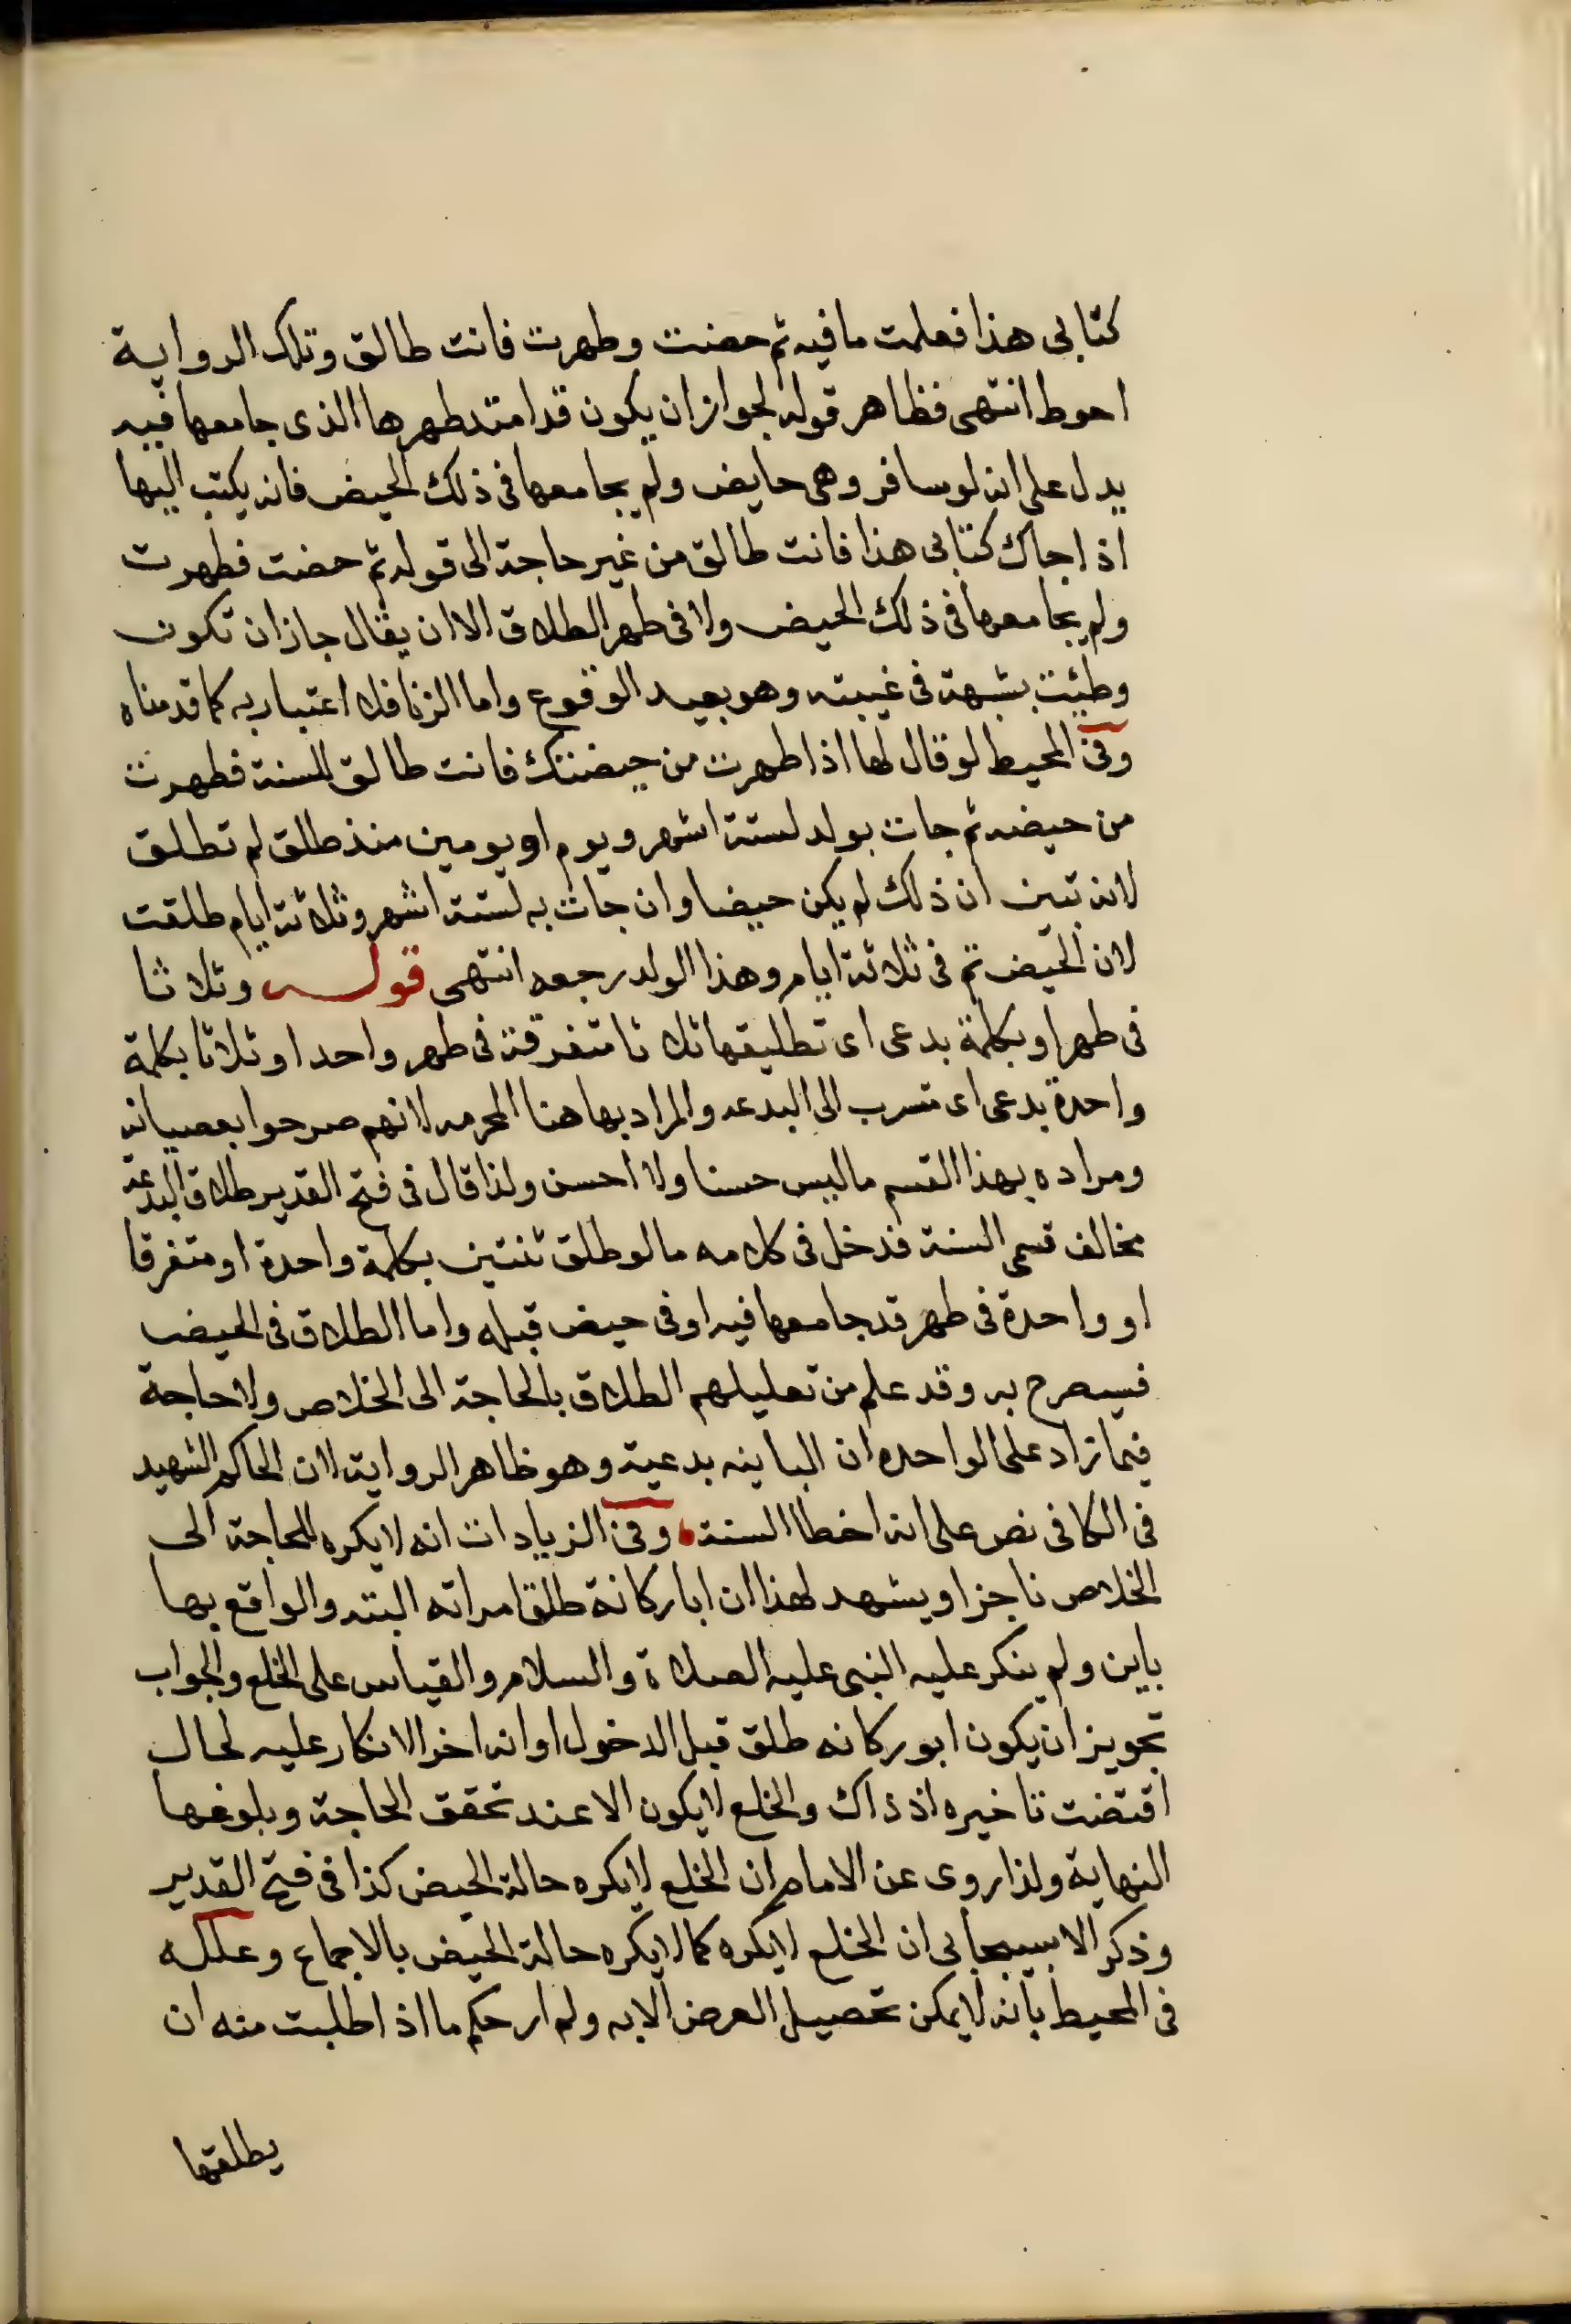 كتابى هذا فعلمت ما فيه ثم حضت وطهرت فانت طالق وتلك الرواية
احوط انتهى فظاهر قوله لجواز ان يكون قد امتد طهرها الذى جامعها فيه
يدل على انه لو سافر وهى حايض ولم يجامعها فى ذلك الحيض فانه يكتب اليها
اذا جاك كتابى هذا فانت طالق من غير حاجة الى قوله ثم حضت فطهرت
ولم يجامعها فى ذلك الحيض ولا فى طهر الطلاق الا ان يقال جاز ان تكون
وطئت بشبهة فى غيبته وهو بعيد الوقوع واما الزنا فلا اعتبار به كما قدمناه
وفى المحيط لو قال لها اذا طهرت من حيضتك فانت طالق للسنة فطهرت
من حيضه ثم جات بولد لستة اشهر ويوم او يومين منذ طلق لم تطلق
لانه تبين ان ذلك لم يكن حيضا وان جات به لستة اشهر وثلاثة ايام طلقت
لان الحيض تم فى ثلاثة ايام وهذا الولد رجعه انتهى قوله وثلاثا
فى طهر او بكلمة بدعى اى تطليقها ثلاثا متفرقة فى طهر واحد او ثلاثا بكلمة
واحدة بدعى اى منسرب الى البدعه والمراد بها هنا المحرمه لانهم صرحوا بعصيانه
ومراده بهذا القسم ما ليس حسنا ولا احسن ولذا قال فى فتح القدير طلاق البدعة
مخالف قسمى السنة فدخل فى كلامه ما لو طلق ثنتين بكلمة واحدة او متفرقا
او واحدة فى طهر قد جامعها فيه او فى حيض قبله واما الطلاق فى الحيض
فسيصرح به وقد علم من تعليلهم الطلاق بالحاجة الى الخلاص ولا حاجة
فيما زاد على الواحده ان الباينه بدعية وهو ظاهر الرواية لان الحاكم الشهيد
فى الكافى نص على انه اخطا السنة وفى الزيادات انه لا يكره للحاجة الى
الخلاص ناجزا ويشهد لهذا ان ابا ركانة طلق امراته البته والواقع بها
باين ولم ينكر عليه النبى عليه الصلاة والسلام والقياس على الخلع والجواب
تجويز ان يكون ابو ركانه طلق قبل الدخول او انه اخر الانكار عليه لحال
اقتضت تاخيره اذ ذاك والخلع لا يكون الا عند تحقق الحاجة وبلوغها
النهاية ولذا روى عن الامام ان الخلع لا يكره حالة الحيض كذا فى فتح القدير
وذكر الاسبيجابى ان الخلع لا يكره كما لا يكره حالة الحيض بالاجماع وعلله
فى المحيط بانه لا يمكن تحصيل العرض الا به ولم ار حكم ما اذا طلبت منه ان
يطلقها